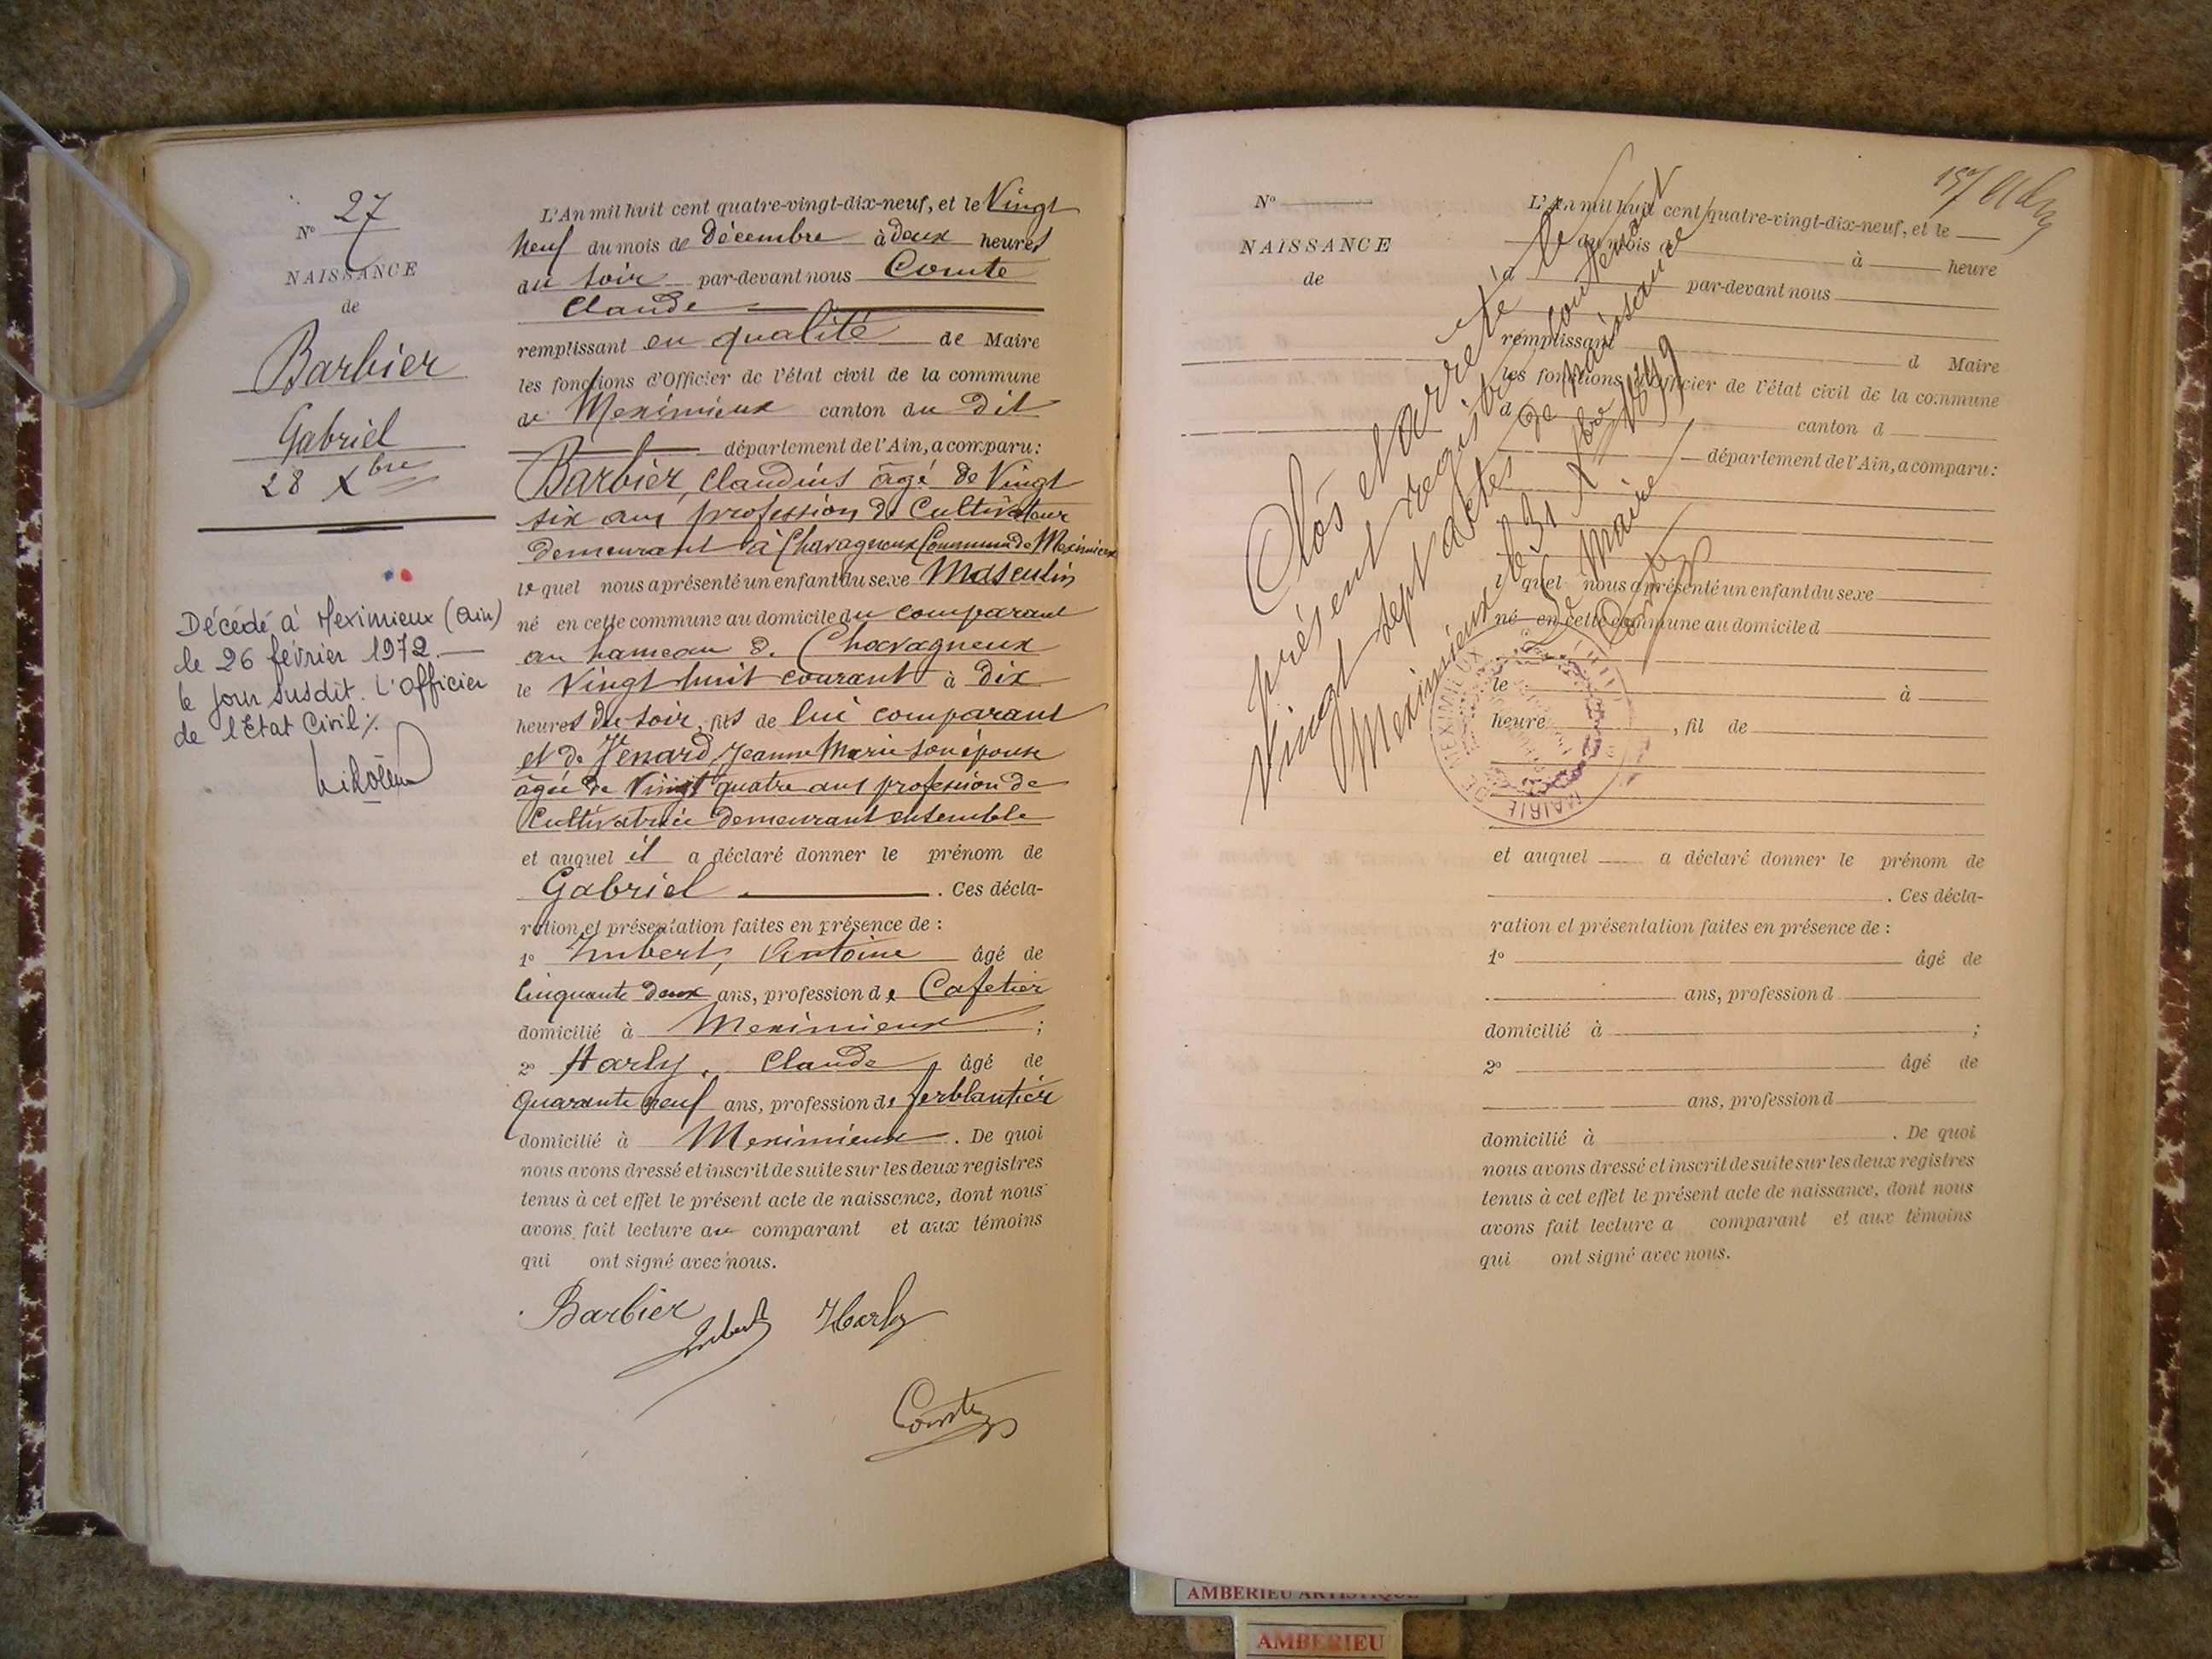 N° 27
NAISSANCE
de
Barbier
Gabriel
28 Xbre
Décédé à Meximieux (Ain)
le 26 février 1972.—
le jour susdit. L'officier
de l'Etat Civil ./.
L'An mil huit cent quatre-vingt-dix-neuf, et le Vingt
Neuf du mois de Décembre à deux heures
du soir par-devant nous Comte
Claude
remplissant en qualité de Maire
les fonctions d'Officier de l'état civil de la commune
de Meximieux canton du dit
département de l'Ain, a comparu:
Barbier, Claudius âgé de Vingt
six ans profession de Cultivateur
demeurant à Chavagneux Commune de Meximieux
lequel nous a présenté un enfant du sexe Masculin
né en cette commune au domicile du comparant
au hameau de Chavagneux
le Vingt huit courant à dix
heures du soir, fils de lui comparant
et de Venard, Jeanne Marie son épouse
âgée de Vingt quatre ans profession de
Cultivatrice demeurant ensemble
et auquel il a déclaré donner le prénom de
Gabriel . Ces décla-
ration et présentation faites en présence de :
1° Imbert, Antoine âgé de
Cinquante deux ans, profession de Cafetier
domicilié à Meximieux ;
2° Harly, Claude âgé de
Quarante neuf ans, profession de ferblantier
domicilié à Meximieux . De quoi
nous avons dressé et inscrit de suite sur les deux registres
tenus à cet effet le présent acte de naissance, dont nous
avons fait lecture au comparant et aux témoins
qui ont signé avec nous.
Barbier Imbert Harly
Comte
N°
NAISSANCE
de
L'An mil huit cent quatre-vingt-dix-neuf, et le
du mois d à heure
d par-devant nous
remplissant d Maire
les fonctions d'Officier de l'état civil de la commune
d canton d
département de l'Ain, a comparu:
l quel nous a présenté un enfant du sexe
né en cette commune au domicile d
le à
heure , fil de
et auquel a déclaré donner le prénom de
. Ces décla-
ration et présentation faites en présence de :
1° âgé de
ans, profession d
domicilié à ;
2° âgé de
ans, profession d
domicilié à . De quoi
nous avons dressé et inscrit de suite sur les deux registres
tenus à cet effet le présent acte de naissance, dont nous
avons fait lecture a comparant et aux témoins
qui ont signé avec nous.
Clos et arrêté le
présent registre contenant
Vingt sept actes de naissance
Meximieux, le 31 Xbre 1899
Le Maire
Comte
MAIRIE DE MEXIMIEUX
AMBERIEU ARTISTIQUE
AMBERIEU